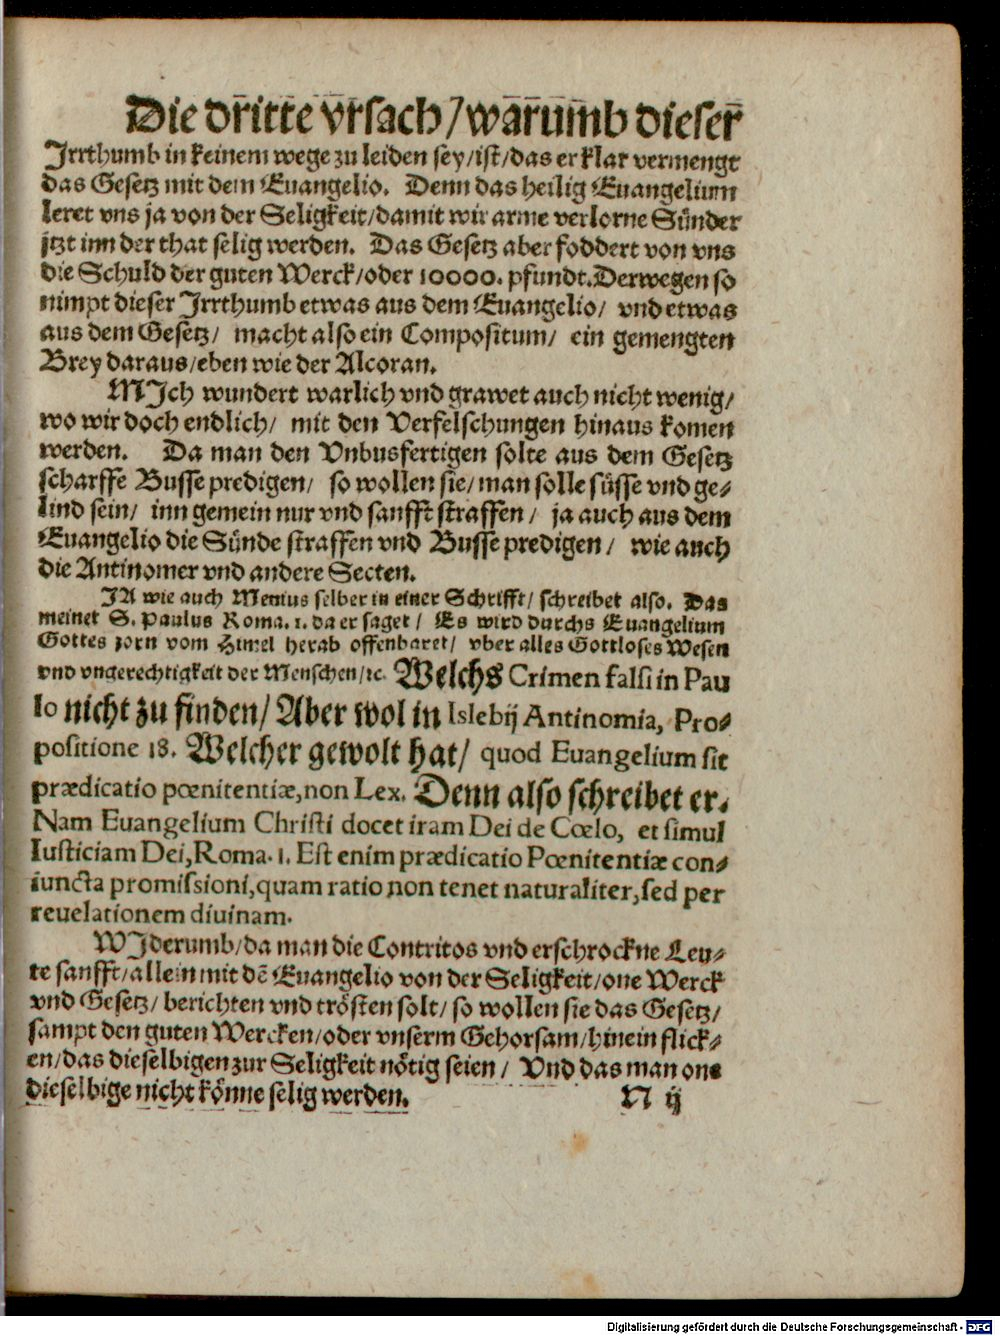 Die dritte vrsach/warumb dieser
Jrrthumb in keinem wege zu leiden sey/ist/das er klar vermengt
das Gesetz mit dem Euangelio. Denn das heilig Euangelium
leret vns ja von der Seligkeit/damit wir arme verlorne Sünder
jtzt inn der that selig werden. Das Gesetz aber foddert von vns
die Schuld der guten Werck/oder 10000. pfundt.Derwegen so
nimpt dieser Jrrthumb etwas aus dem Euangelio/ vnd etwas
aus dem Gesetz/ macht also ein Compositum/ ein gemengten
Brey daraus/eben wie der Alcoran.
MJch wundert warlich vnd grawet auch nicht wenig/
wo wir doch endlich/ mit den Verfelschungen hinaus komen
werden. Da man den Vnbusfertigen solte aus dem Gesetz
scharffe Busse predigen/ so wollen sie/man solle süsse vnd ge-
lind sein/ inn gemein nur vnd sanfft straffen/ ja auch aus dem
Euangelio die Sünde straffen vnd Busse predigen/ wie auch
die Antinomer vnd andere Secten.
JA wie auch Menius selber in einer Schrifft/ schreibet also. Das
meinet S. Paulus Roma. 1. da er saget/ Es wird durchs Euangelium
Gottes zorn vom Himel herab offenbaret/ vber alles Gottloses Wesen
vnd vngerechtigkeit der Menschen/ꝛc. Welchs Crimen falsi in Pau
lo nicht zu finden/ Aber wol in Islebij Antinomia, Pro-
positione 18. Welcher gewolt hat/ quod Euangelium sit
prædicatio pœnitentiæ,non Lex. Denn also schreibet er.
Nam Euangelium Christi docet iram Dei de Cœlo, et simul
Iusticiam Dei,Roma. 1. Est enim prædicatio Pœnitentiæ con-
iuncta promissioni,quam ratio non tenet naturaliter,sed per
reuelationem diuinam.
WJderumb/da man die Contritos vnd erschrockne Leu-
te sanfft/allein mit dē Euangelio von der Seligkeit/one Werck
vnd Gesetz/ berichten vnd trösten solt/ so wollen sie das Gesetz/
sampt den guten Wercken/oder vnserm Gehorsam/hinein flick-
en/das dieselbigen zur Seligkeit nötig seien/ Vnd das man one
dieselbige nicht könne selig werden.
N ij
Digitalisierung gefördert durch die Deutsche Forschungsgemeinschaft - DFG